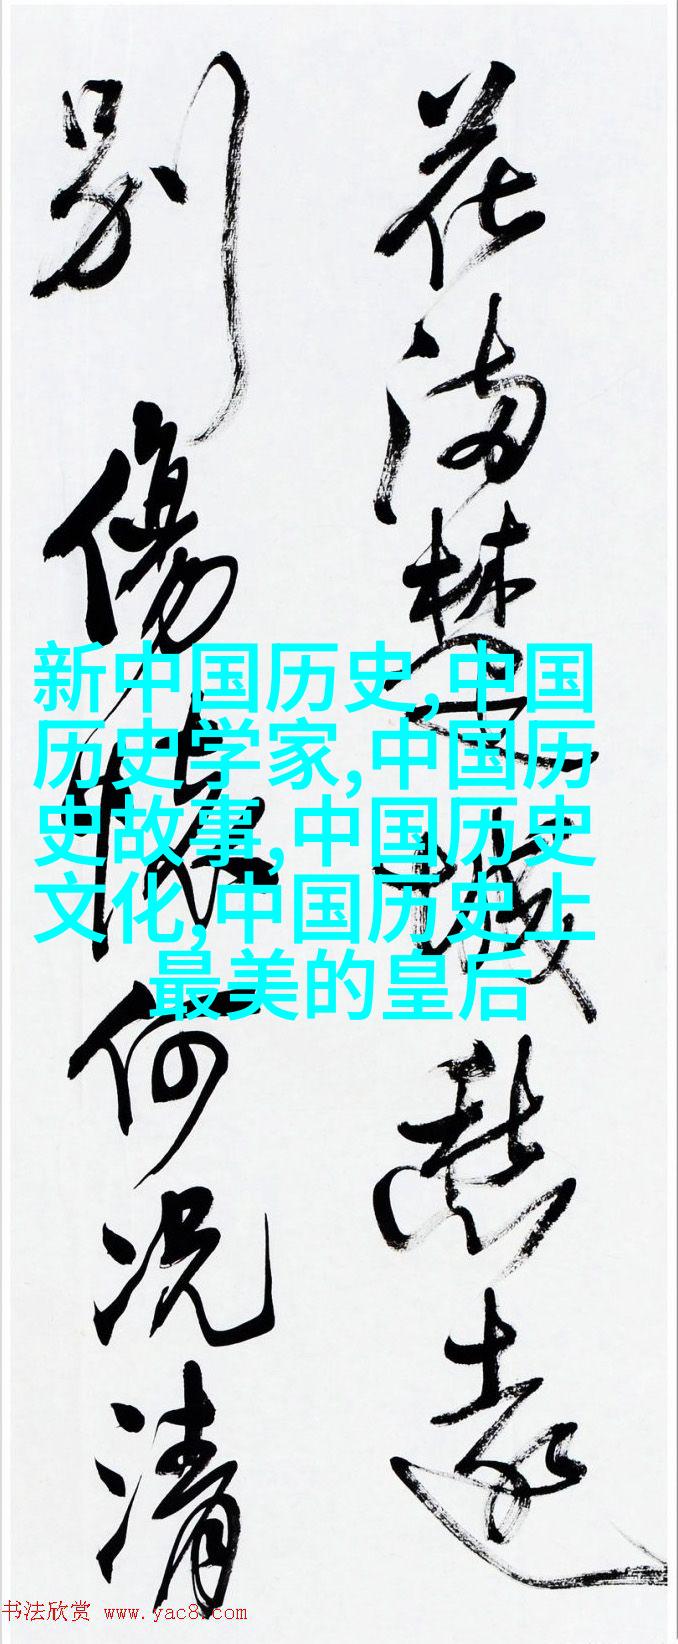 花滿楚城愁遠
別傷何况清
新中国历史,中国
历史学家,中国历
史故事,中国历史
文化,中国历史上
最美的皇后
书法欣赏 www.yac8.com